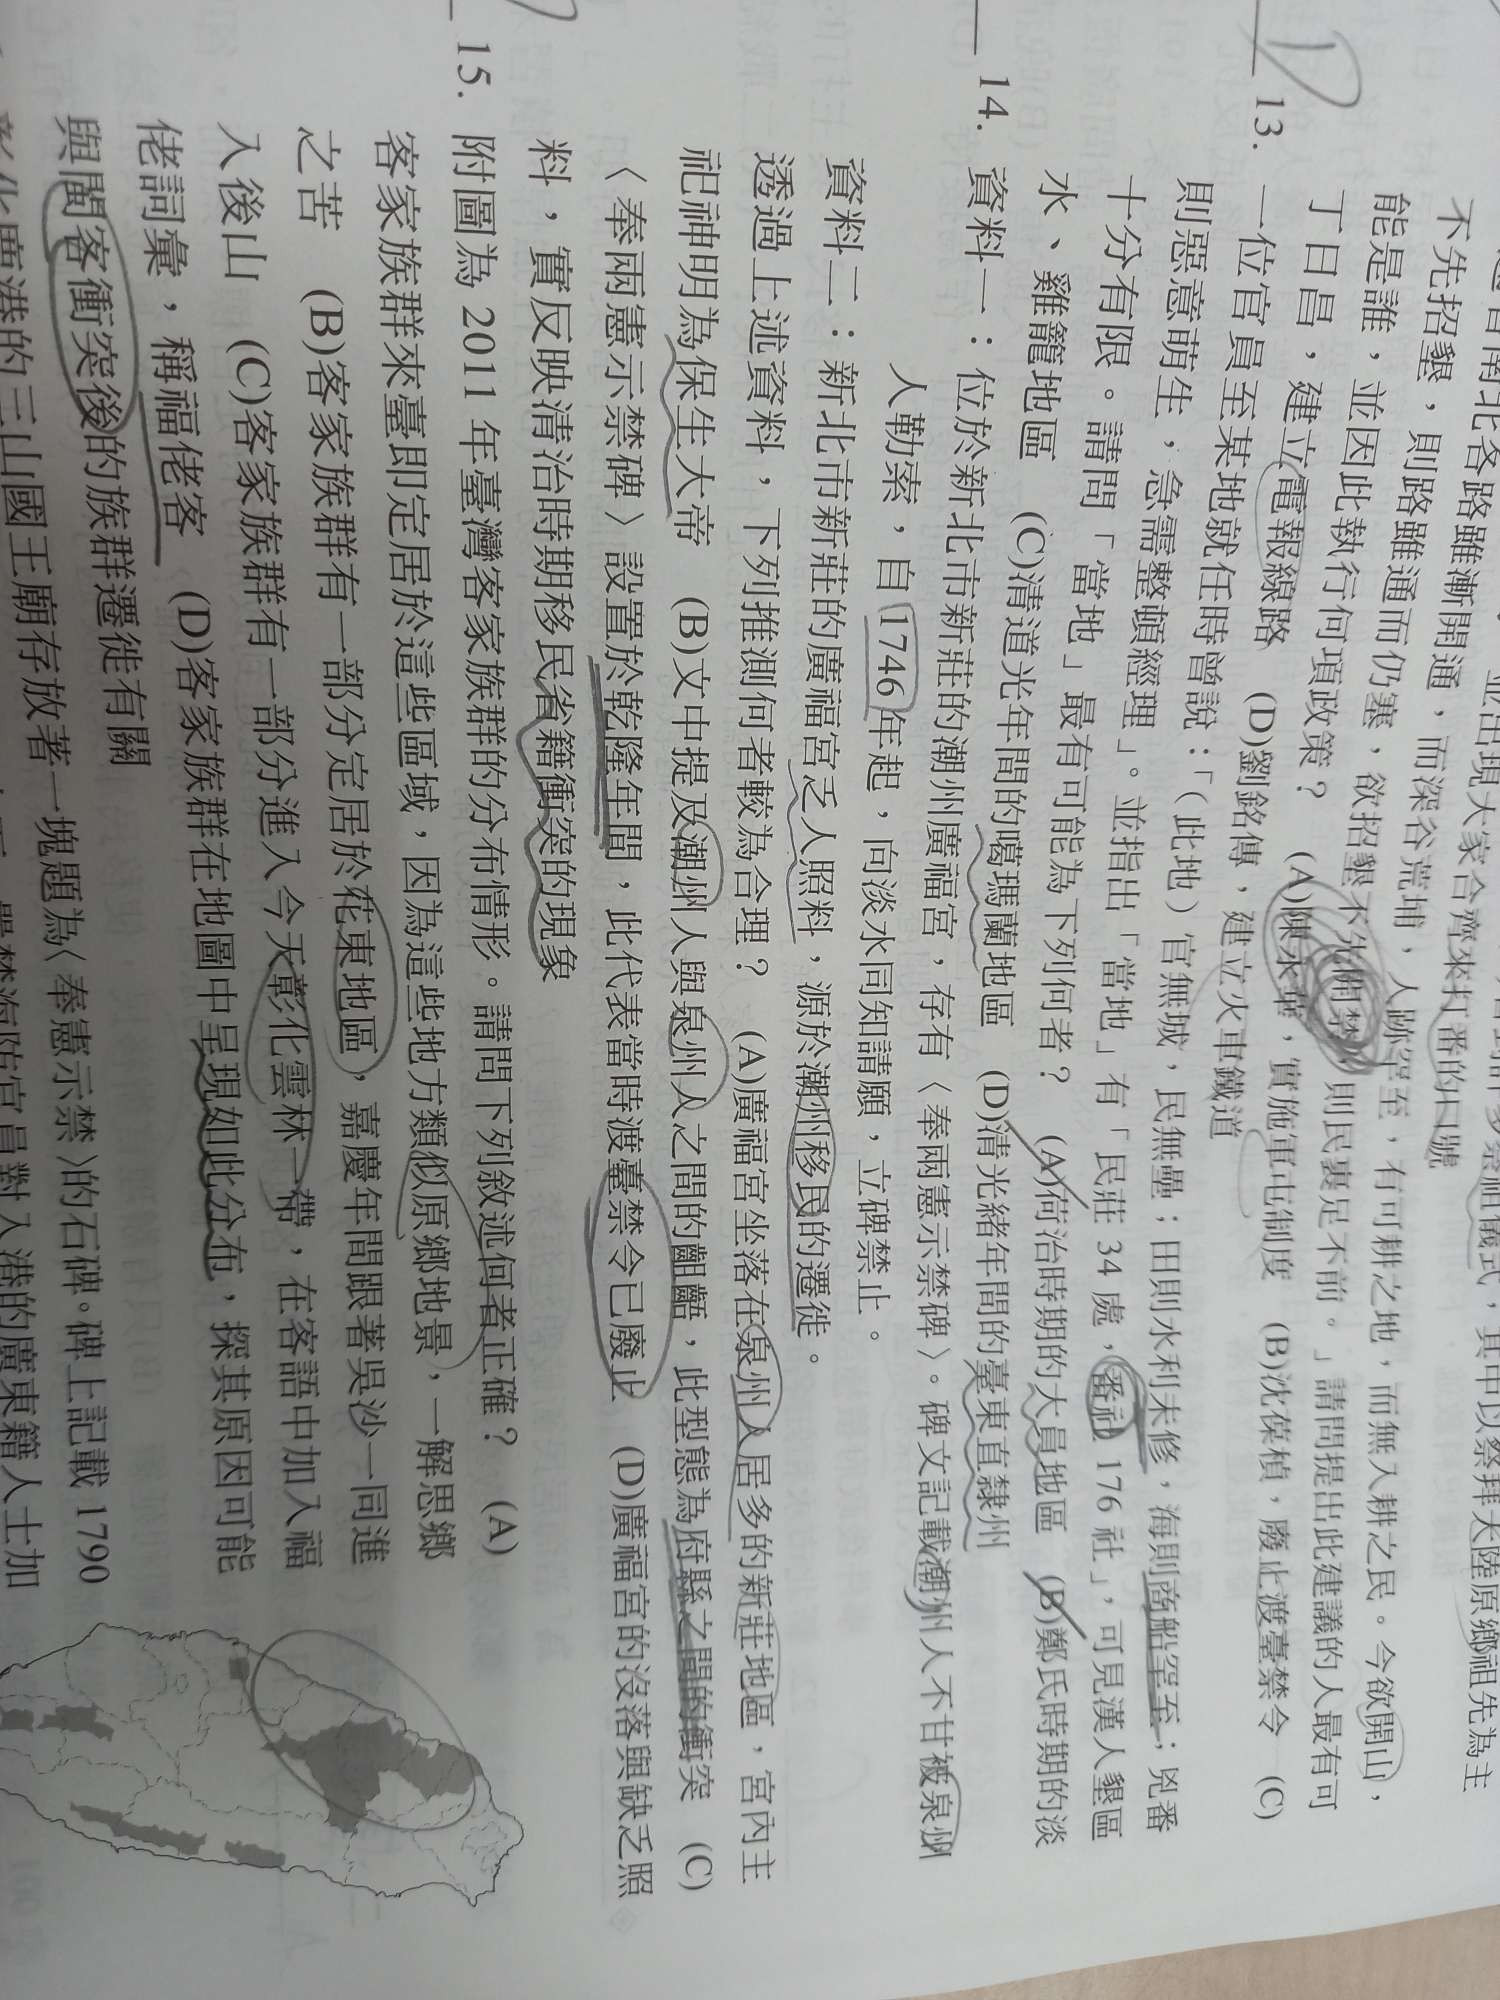 並出現大家合齊來打番的口號
不先招墾，則路雖漸開通，而深谷荒埔，人跡罕至，有可耕之地，而無入耕之民。今欲開山，
能是誰，並因此執行何項政策？ (A)陳永華，實施軍屯制度 (B)沈葆楨，廢止渡臺禁令 (C)
丁日昌，建立電報線路 (D)劉銘傳，建立火車鐵道
13. 一位官員至某地就任時曾說：「（此地）官無城，民無壘；田則水利未修，海則商船罕至；兇番
則惡意萌生，急需整頓經理」。並指出「當地」有「民莊 34 處，番社 176 社」，可見漢人墾區
十分有限。請問「當地」最有可能為下列何者？ (A)荷治時期的大員地區 (B)鄭氏時期的淡
水、雞籠地區 (C)清道光年間的噶瑪蘭地區 (D)清光緒年間的臺東直隸州
14. 資料一：位於新北市新莊的潮州廣福宮，存有〈奉兩憲示禁碑〉。碑文記載潮州人不甘被泉州
人勒索，自 1746 年起，向淡水同知請願，立碑禁止。
資料二：新北市新莊的廣福宮乏人照料，源於潮州移民的遷徙。
透過上述資料，下列推測何者較為合理？ (A)廣福宮坐落在泉州人居多的新莊地區，宮內主
祀神明為保生大帝 (B)文中提及潮州人與泉州人之間的齟齬，此型態為府縣之間的衝突 (C)
〈奉兩憲示禁碑〉設置於乾隆年間，此代表當時渡臺禁令已廢止 (D)廣福宮的沒落與缺乏照
料，實反映清治時期移民省籍衝突的現象
15. 附圖為 2011 年臺灣客家族群的分布情形。請問下列敘述何者正確？ (A)
客家族群來臺即定居於這些區域，因為這些地方類似原鄉地景，一解思鄉
之苦 (B)客家族群有一部分定居於花東地區，嘉慶年間跟著吳沙一同進
入後山 (C)客家族群有一部分進入今天彰化雲林一帶，在客語中加入福
佬詞彙，稱福佬客 (D)客家族群在地圖中呈現如此分布，探其原因可能
與閩客衝突後的族群遷徙有關
彰化鹿港的三山國王廟存放著一塊題為〈奉憲示禁〉的石碑。碑上記載 1790